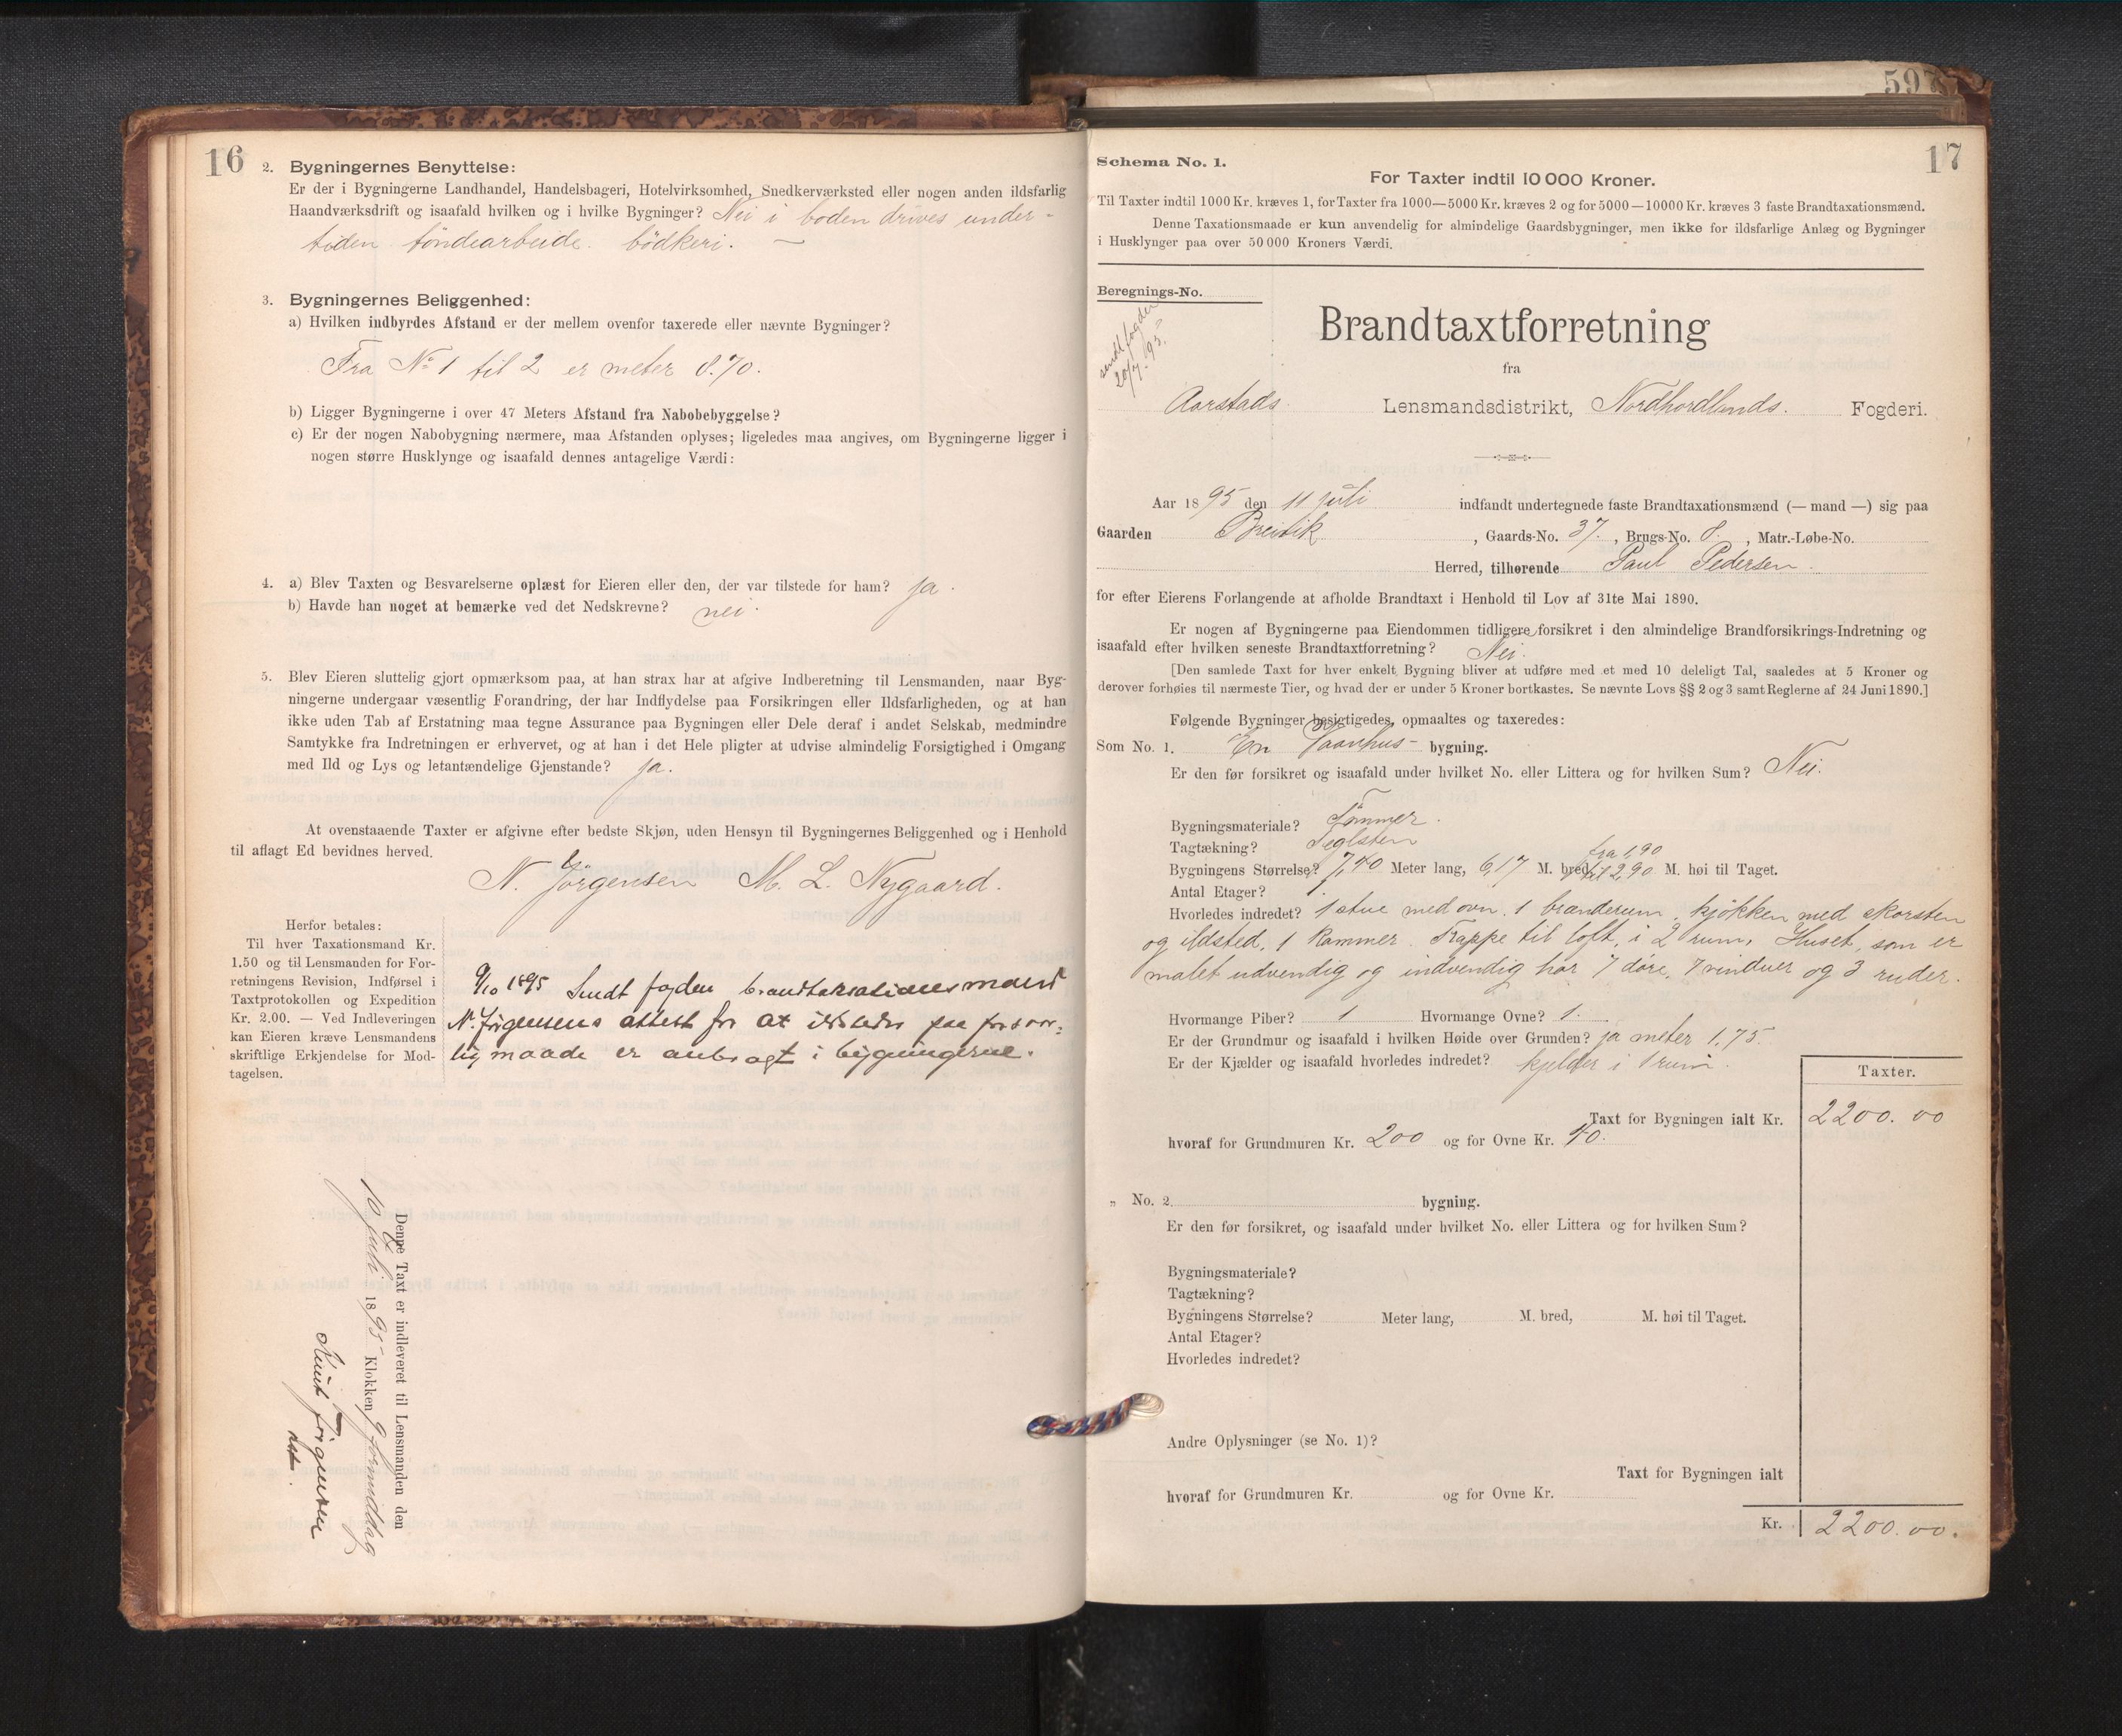 16
2. Bygningernes Benyttelse:
Er der i Bygningerne Landhandel, Handelsbageri, Hotelvirksomhed, Snedkerværksted eller nogen anden ildsfarlig
Haandværksdrift og isaafald hvilken og i hvilke Bygninger? Nei i boden drives under-
tiden töndearbeide. bödkeri. —
3. Bygningernes Beliggenhed:
a) Hvilken indbyrdes Afstand er der mellem ovenfor taxerede eller nævnte Bygninger?
Fra No 1 til 2 er meter 8.70.
b) Ligger Bygningerne i over 47 Meters Afstand fra Nabobebyggelse?
c) Er der nogen Nabobygning nærmere, maa Afstanden oplyses; ligeledes maa angives, om Bygningerne ligger i
nogen større Husklynge og isaafald dennes antagelige Værdi:
4. a) Blev Taxten og Besvarelserne oplæst for Eieren eller den, der var tilstede for ham? ja.
b) Havde han noget at bemærke ved det Nedskrevne? nei.
5. Blev Eieren sluttelig gjort opmærksom paa, at han strax har at afgive Indberetning til Lensmanden, naar Byg-
ningerne undergaar væsentlig Forandring, der har Indflydelse paa Forsikringen eller Ildsfarligheden, og at han
ikke uden Tab af Erstatning maa tegne Assurance paa Bygningen eller Dele deraf i andet Selskab, medmindre
Samtykke fra Indretningen er erhvervet, og at han i det Hele pligter at udvise almindelig Forsigtighed i Omgang
med Ild og Lys og letantændelige Gjenstande? ja.
At ovenstaaende Taxter er afgivne efter bedste Skjøn, uden Hensyn til Bygningernes Beliggenhed og i Henhold
til aflagt Ed bevidnes herved.
N. Jörgensen M. L. Nygaard.
Herfor betales:
Til hver Taxationsmand Kr.
1.50 og til Lensmanden for For-
retningens Revision, Indførsel i
Taxtprotokollen og Expedition
Kr. 2.00. — Ved Indleveringen
kan Eieren kræve Lensmandens
skriftlige Erkjendelse for Mod-
tagelsen.
9/10 1895 Sendt fogden brandtaxationsmand
N. Jörgensens attest for at ildsteder paa forsvar-
lig maade er anbragt i bygningerne.
Denne Taxt er indleveret til Lensmanden den
10 juli 1895 Klokken 9 formiddag
Knut Jörgensen
17
Schema No. 1.
For Taxter indtil 10 000 Kroner.
Til Taxter indtil 1000 Kr. kræves 1, for Taxter fra 1000—5000 Kr. kræves 2 og for 5000—10000 Kr. kræves 3 faste Brandtaxationsmænd.
Denne Taxationsmaade er kun anvendelig for almindelige Gaardsbygninger, men ikke for ildsfarlige Anlæg og Bygninger
i Husklynger paa over 50 000 Kroners Værdi.
Beregnings-No.
sendt fogden
20/7. 95.
Brandtaxtforretning
fra
Aarstads Lensmandsdistrikt, Nordhordlands. Fogderi.
Aar 1895 den 11 juli indfandt undertegnede faste Brandtaxationsmænd (— mand —) sig paa
Gaarden Breivik, Gaards-No. 37., Brugs-No. 8., Matr.-Løbe-No.
Herred, tilhørende Paul Pedersen.
for efter Eierens Forlangende at afholde Brandtaxt i Henhold til Lov af 31te Mai 1890.
Er nogen af Bygningerne paa Eiendommen tidligere forsikret i den almindelige Brandforsikrings-Indretning og
isaafald efter hvilken seneste Brandtaxtforretning? Nei.
[Den samlede Taxt for hver enkelt Bygning bliver at udføre med et med 10 deleligt Tal, saaledes at 5 Kroner og
derover forhøies til nærmeste Tier, og hvad der er under 5 Kroner bortkastes. Se nævnte Lovs §§ 2 og 3 samt Reglerne af 24 Juni 1890.]
Følgende Bygninger besigtigedes, opmaaltes og taxeredes:
Som No. 1. En Vaanhus- bygning.
Er den før forsikret og isaafald under hvilket No. eller Littera og for hvilken Sum? Nei.
Bygningsmateriale? Tömmer.
Tagtækning? Teglsten
Bygningens Størrelse? 7,40 Meter lang, 6,17 M. bred, fra 1,90 til 2,90 M. høi til Taget.
Antal Etager? 1
Hvorledes indredet? 1 stue med ovn. 1 branderum. kjökken med skorsten
og ildsted, 1 kammer. Trappe til loft, i 2 rum. Huset, som er
malet udvendig og indvendig har 7 döre, 7 vinduer og 3 ruder.
Hvormange Piber? 1 Hvormange Ovne? 1.
Er der Grundmur og isaafald i hvilken Høide over Grunden? ja meter 1,75.
Er der Kjælder og isaafald hvorledes indredet? kjelder i 1 rum.
Taxter.
Taxt for Bygningen ialt Kr. 2200.00
hvoraf for Grundmuren Kr. 200 og for Ovne Kr. 40.
„ No. 2 bygning.
Er den før forsikret, og isaafald under hvilket No. eller Littera og for hvilken Sum?
Bygningsmateriale?
Tagtækning?
Bygningens Størrelse? Meter lang, M. bred, M. høi til Taget.
Antal Etager?
Hvorledes indredet?
Andre Oplysninger (se No. 1)?
Taxt for Bygningen ialt
hvoraf for Grundmuren Kr. og for Ovne Kr.
Kr. 2200.00.
597